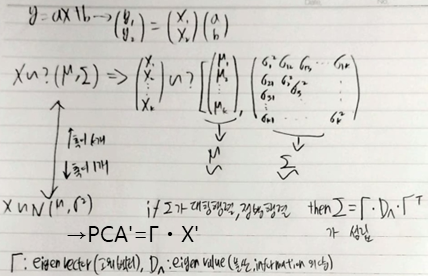 y = ax+b → (y₁ y₂) = (x₁ x₂)(a b)
X ~ ? (μ, Σ) ⇒ (X₁ X₂ ⋮ Xₖ) ~ ? [(μ₁ μ₂ ⋮ μₖ), (σ₁² σ₁₂ σ₁₃ … σ₁ₖ σ₂₁ σ₂² σ₂₃ σ₃₁ σ₃² ⋮ σₖ₁ … σₖ²)]
μ Σ
↑ 축이 k개
↓ 축이 1개
X ~ N(μ, σ²) if Σ가 대칭행렬, 정방행렬 then Σ = Γ · D_λ · Γᵀ
가 성립
→PCA'=Γ · X'
Γ : eigen vector (고유벡터), D_λ : eigen value (information